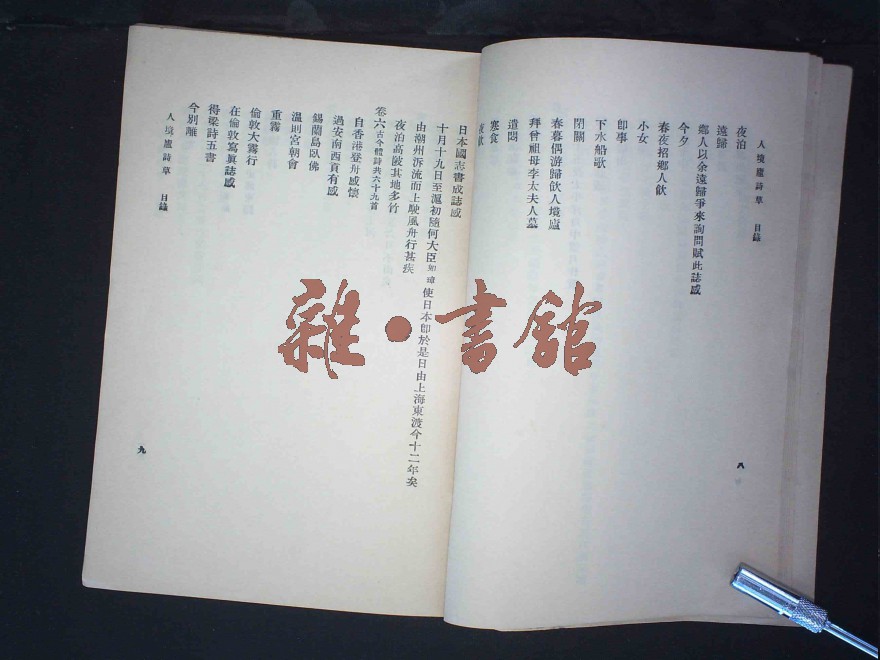 人境廬詩草　目錄
夜泊
遠歸
鄉人以余遠歸爭來詢問賦此誌感
今夕
春夜招鄉人飲
小女
卽事
下水船歌
閉關
春暮偶游歸飲人境廬
拜曾祖母李太夫人墓
遣悶
寒食
夜飲
八
日本國志書成誌感
十月十九日至滬初隨何大臣如璋使日本卽於是日由上海東渡今十二年矣
由潮州泝流而上駛風舟行甚疾
夜泊高陂其地多竹
卷六古今體詩共六十九首
自香港登舟感懷
過安南西貢有感
錫蘭島臥佛
溫則宮朝會
重霧
倫敦大霧行
在倫敦寫眞誌感
得梁詩五書
今別離
人境廬詩草　目錄
九
雜·書館